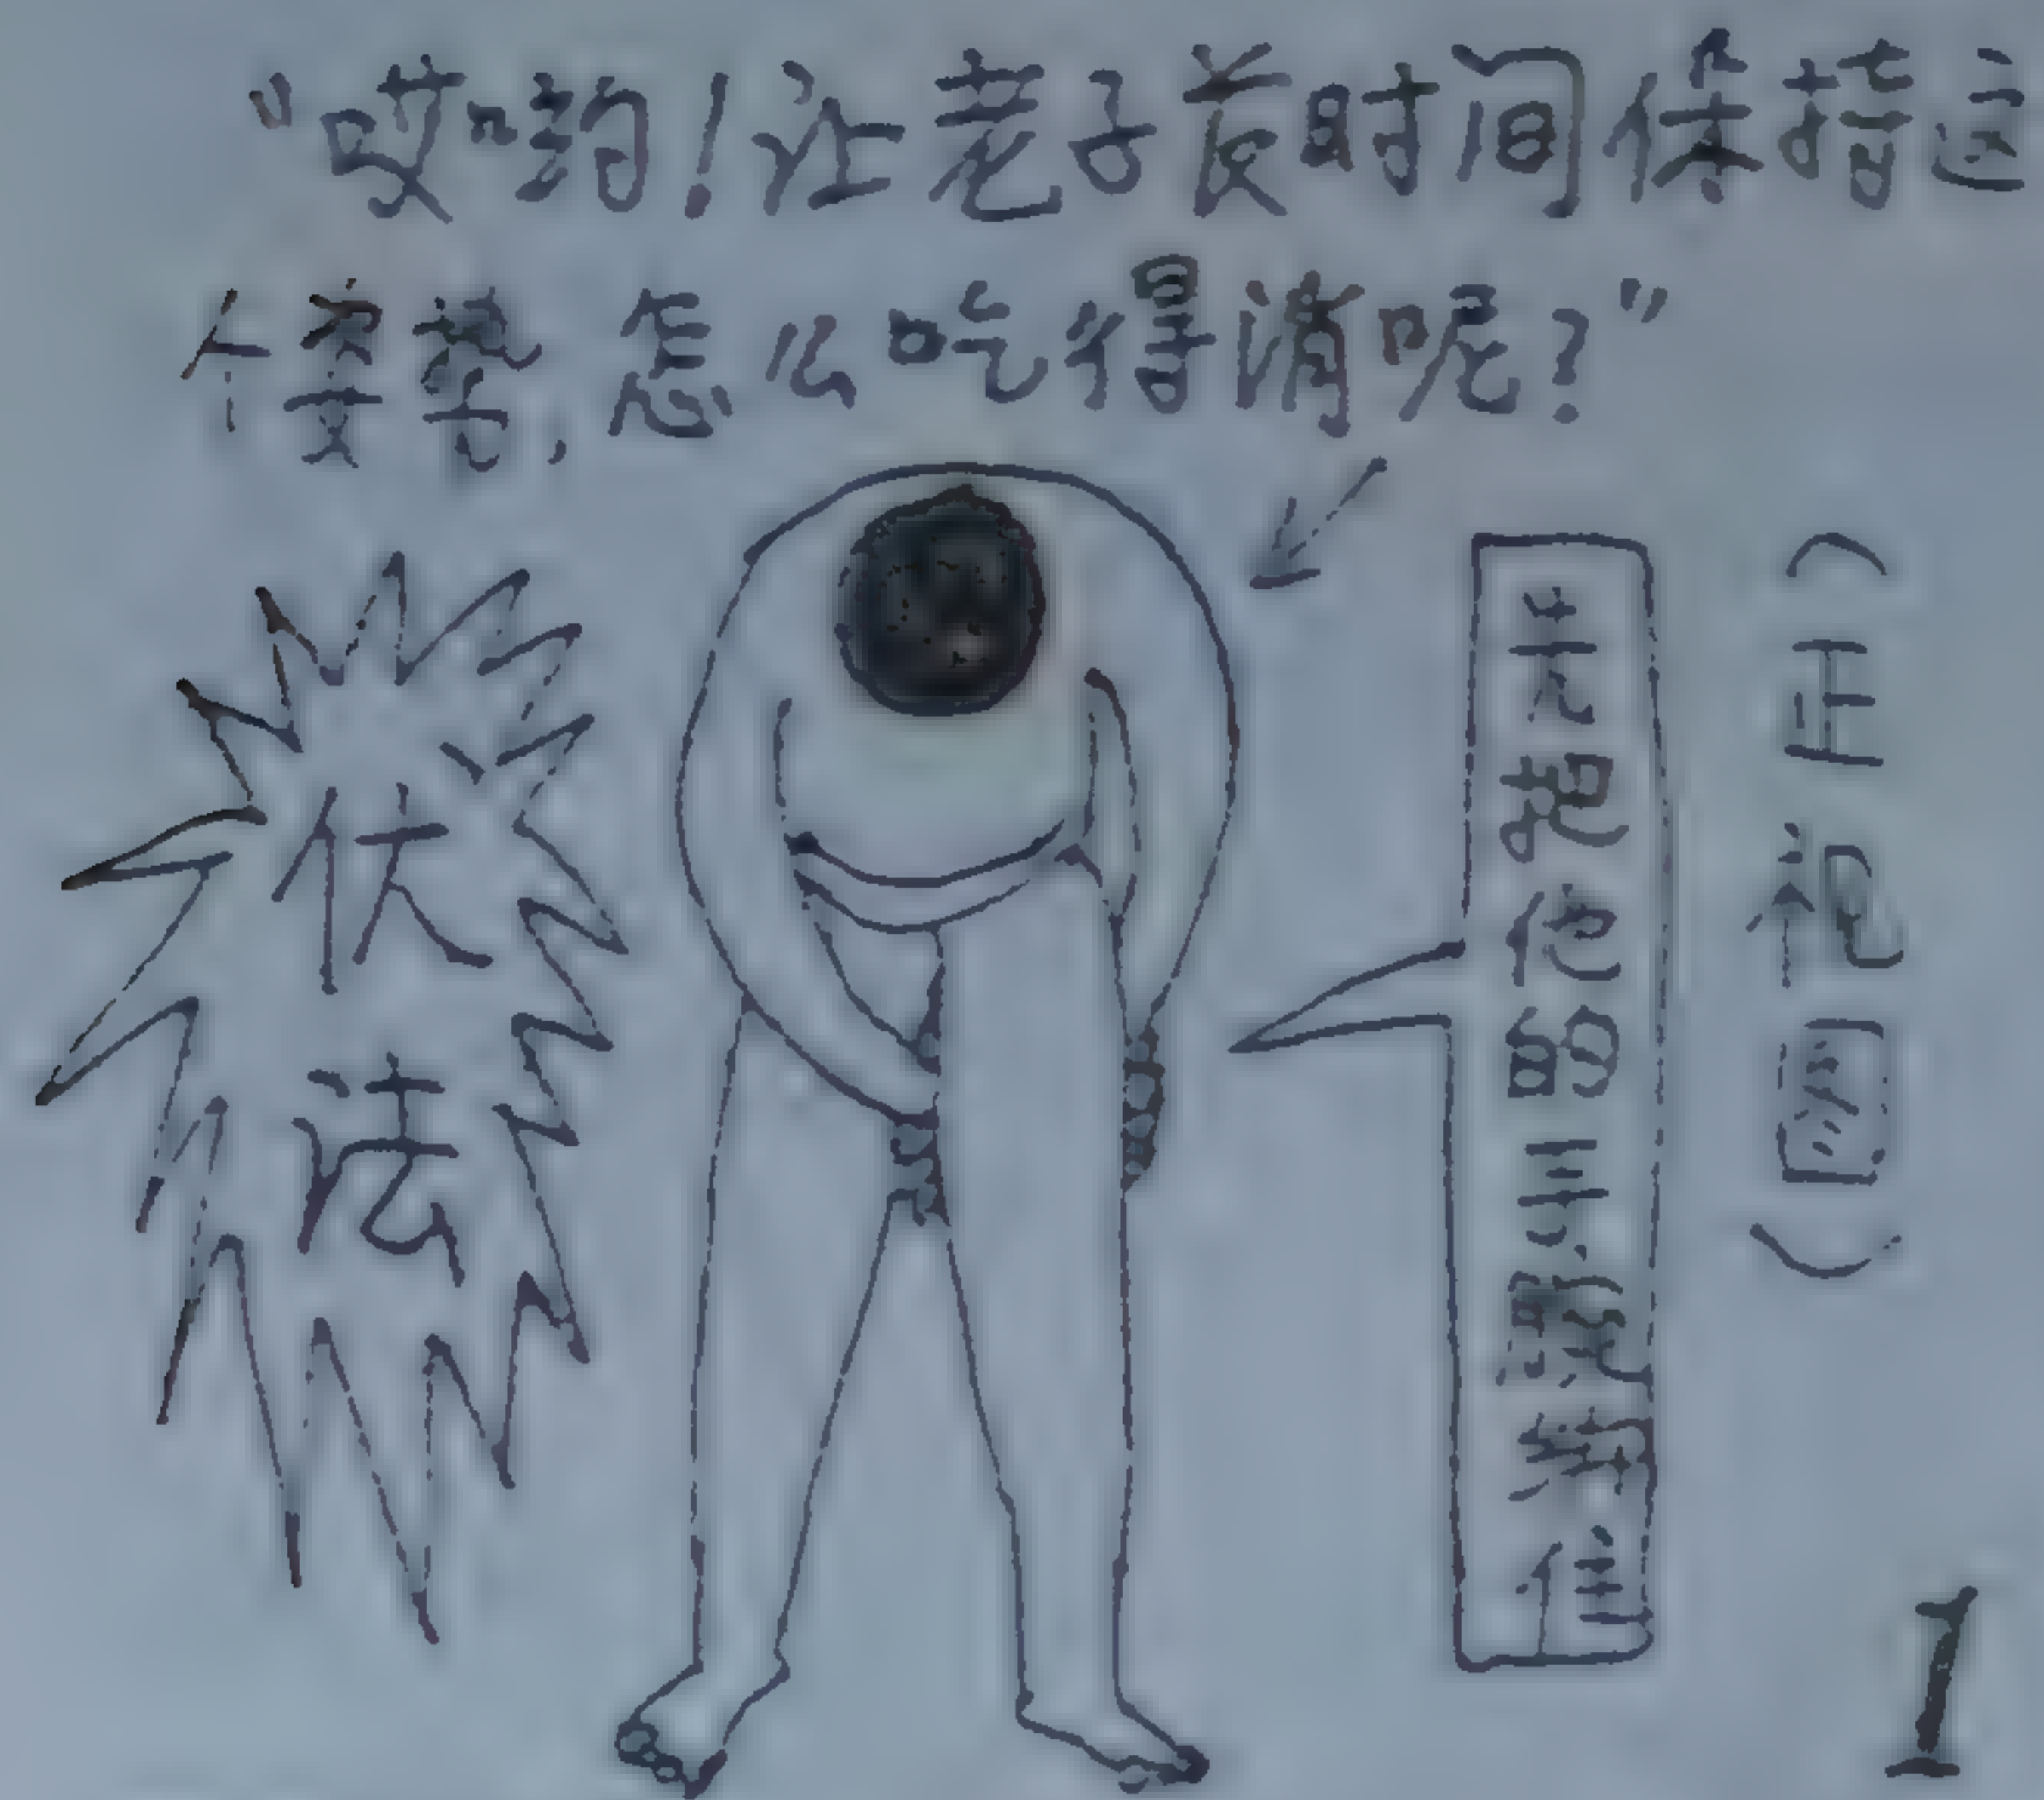 "哎哟!让老子长时间保持这
个姿势,怎么吃得消呢?"
伏法
先把他的手脚绑住
(正视图)
1